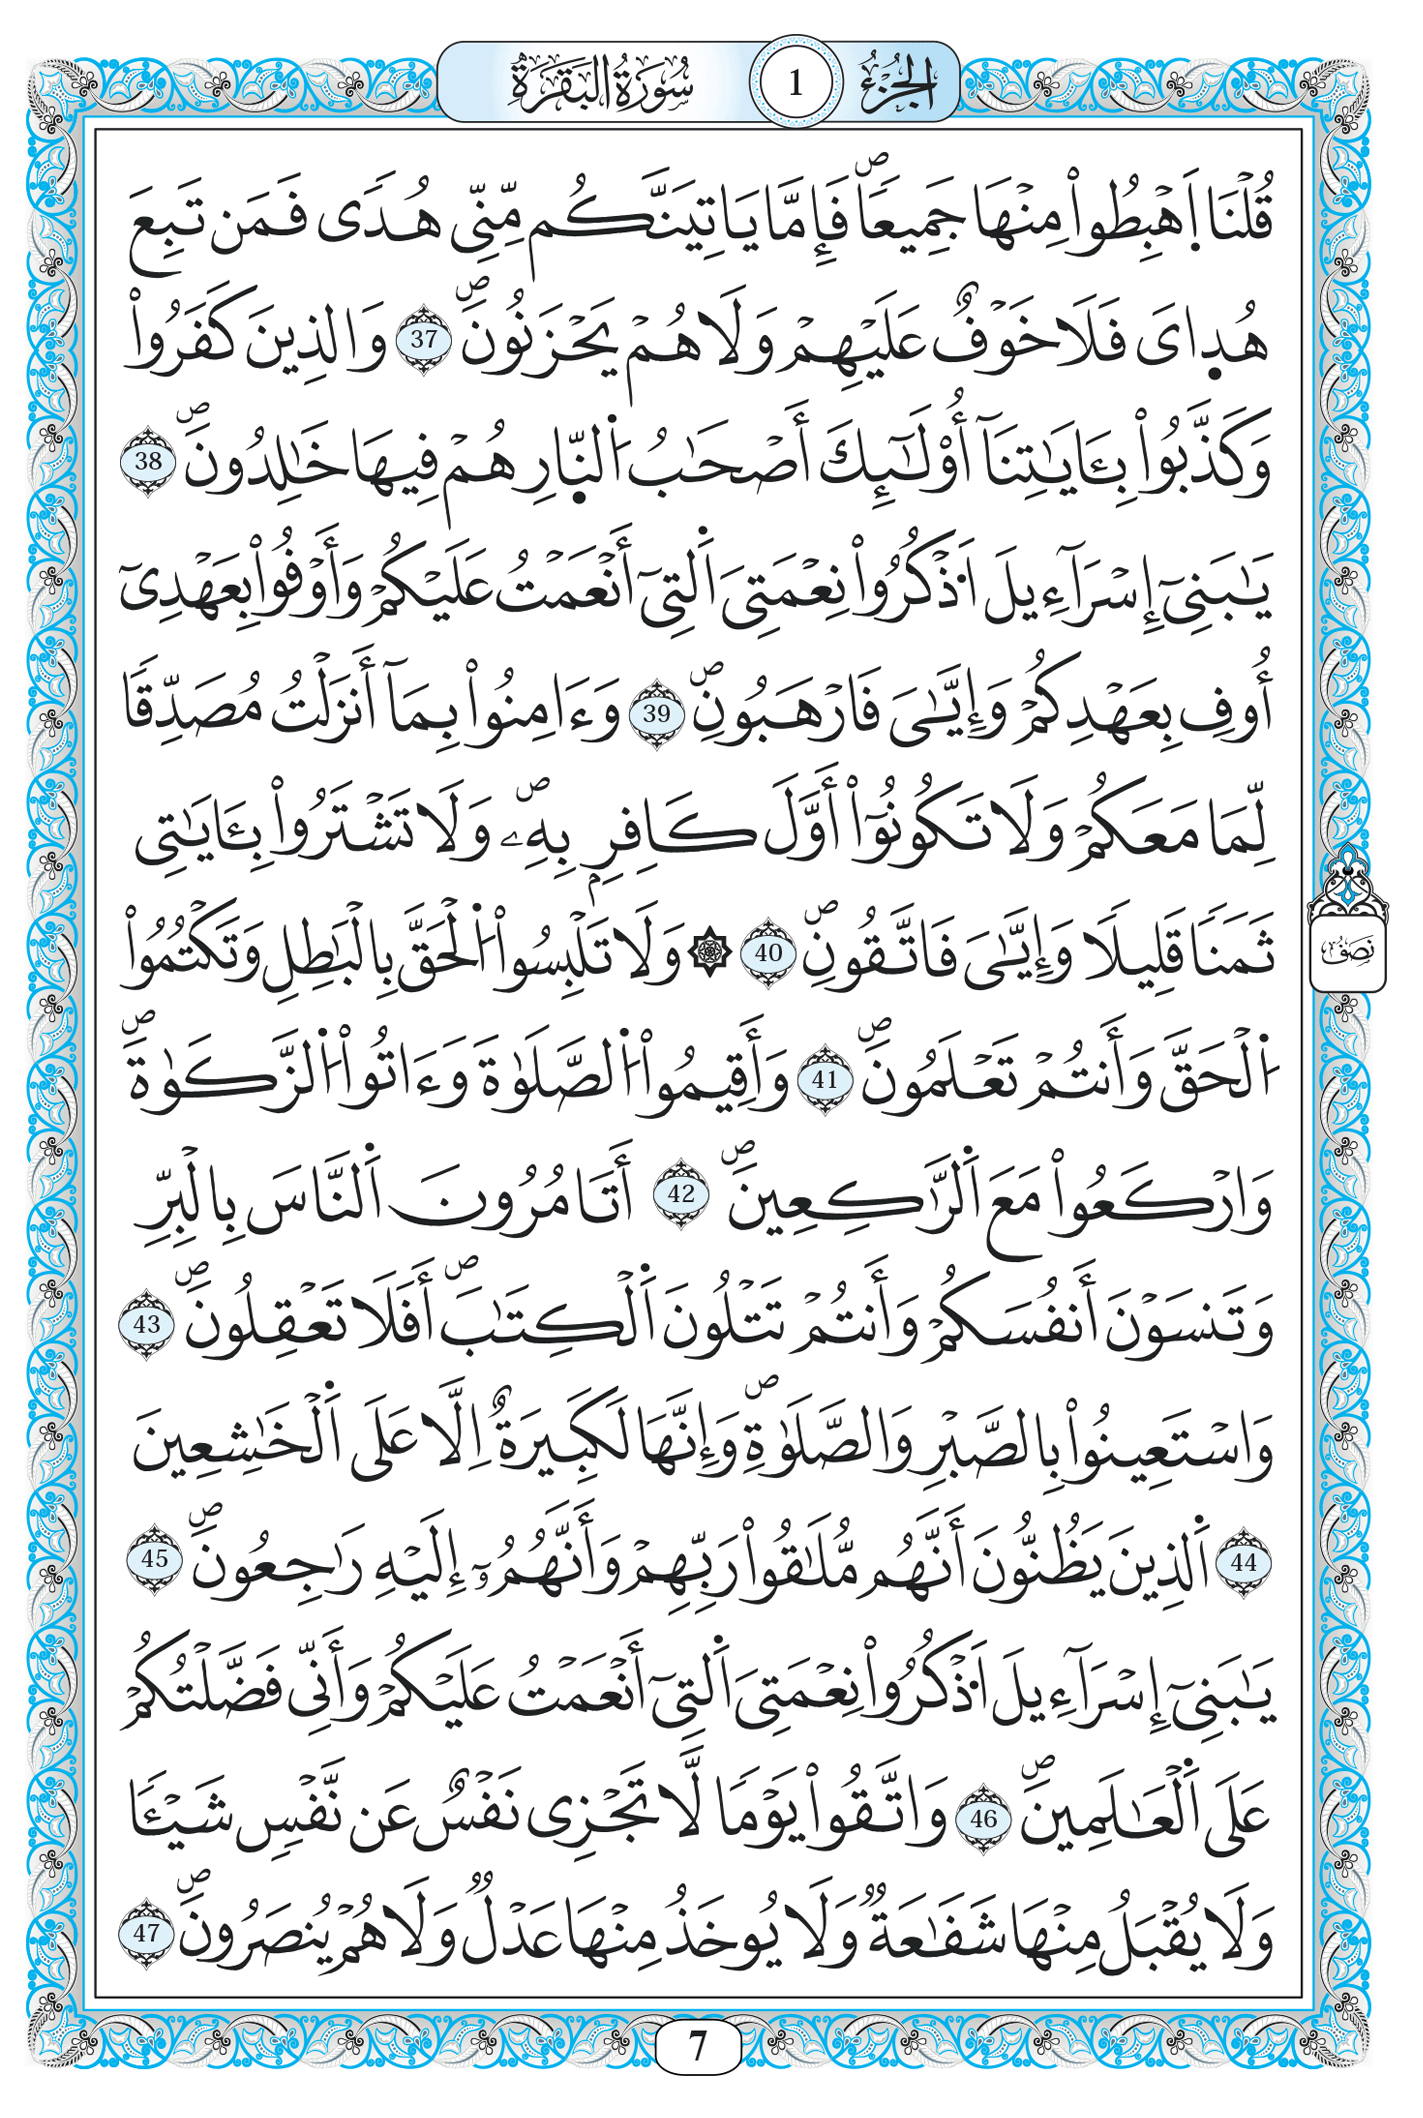 الجُزْءُ 1 سُورَةُ البَقَرَةِ
قُلْنَا اَهْبِطُواْ مِنْهَا جَمِيعاٗۖ فَإِمَّا يَاتِيَنَّكُم مِّنِّے هُديٗ فَمَن تَبِعَ
هُد۪ايَ فَلَا خَوْفٌ عَلَيْهِمْ وَلَا هُمْ يَحْزَنُونَۖ 37 وَالذِينَ كَفَرُواْ
وَكَذَّبُواْ بِـَٔايَٰتِنَآ أُوْلَٰٓئِكَ أَصْحَٰبُ اُ۬لنّ۪ارِ هُمْ فِيهَا خَٰلِدُونَۖ 38
يَٰبَنِےٓ إِسْرَآءِيلَ اَ۟ذْكُرُواْ نِعْمَتِيَ اَ۬لتِےٓ أَنْعَمْتُ عَلَيْكُمْ وَأَوْفُواْ بِعَهْدِےٓ
أُوفِ بِعَهْدِكُمْ وَإِيَّٰيَ فَارْهَبُونِۖ 39 وَءَامِنُواْ بِمَآ أَنزَلْتُ مُصَدِّقاٗ
لِّمَا مَعَكُمْ وَلَا تَكُونُوٓاْ أَوَّلَ كَافِرِۢ بِهِۦۖ وَلَا تَشْتَرُواْ بِـَٔايَٰتِے
ثَمَناٗ قَلِيلاٗ وَإِيَّٰيَ فَاتَّقُونِۖ 40 ۞ وَلَا تَلْبِسُواْ اُ۬لْحَقَّ بِالْبَٰطِلِ وَتَكْتُمُواْ
نِصْفُ
اُ۬لْحَقَّ وَأَنتُمْ تَعْلَمُونَۖ 41 وَأَقِيمُواْ اُ۬لصَّلَوٰةَ وَءَاتُواْ اُ۬لزَّكَوٰةَۖ
وَارْكَعُواْ مَعَ اَ۬لرَّٰكِعِينَۖ 42 أَتَامُرُونَ اَ۬لنَّاسَ بِالْبِرِّ
وَتَنسَوْنَ أَنفُسَكُمْ وَأَنتُمْ تَتْلُونَ اَ۬لْكِتَٰبَۖ أَفَلَا تَعْقِلُونَۖ 43
وَاسْتَعِينُواْ بِالصَّبْرِ وَالصَّلَوٰةِۖ وَإِنَّهَا لَكَبِيرَةٌ اِلَّا عَلَي اَ۬لْخَٰشِعِينَ
44 اَ۬لذِينَ يَظُنُّونَ أَنَّهُم مُّلَٰقُواْ رَبِّهِمْ وَأَنَّهُمُۥٓ إِلَيْهِ رَٰجِعُونَۖ 45
يَٰبَنِےٓ إِسْرَآءِيلَ اَ۟ذْكُرُواْ نِعْمَتِيَ اَ۬لتِےٓ أَنْعَمْتُ عَلَيْكُمْ وَأَنِّے فَضَّلْتُكُمْ
عَلَي اَ۬لْعَٰلَمِينَۖ 46 وَاتَّقُواْ يَوْماٗ لَّا تَجْزِے نَفْسٌ عَن نَّفْسٖ شَيْـٔاٗ
وَلَا يُقْبَلُ مِنْهَا شَفَٰعَةٞ وَلَا يُوخَذُ مِنْهَا عَدْلٞ وَلَا هُمْ يُنصَرُونَۖ 47
7